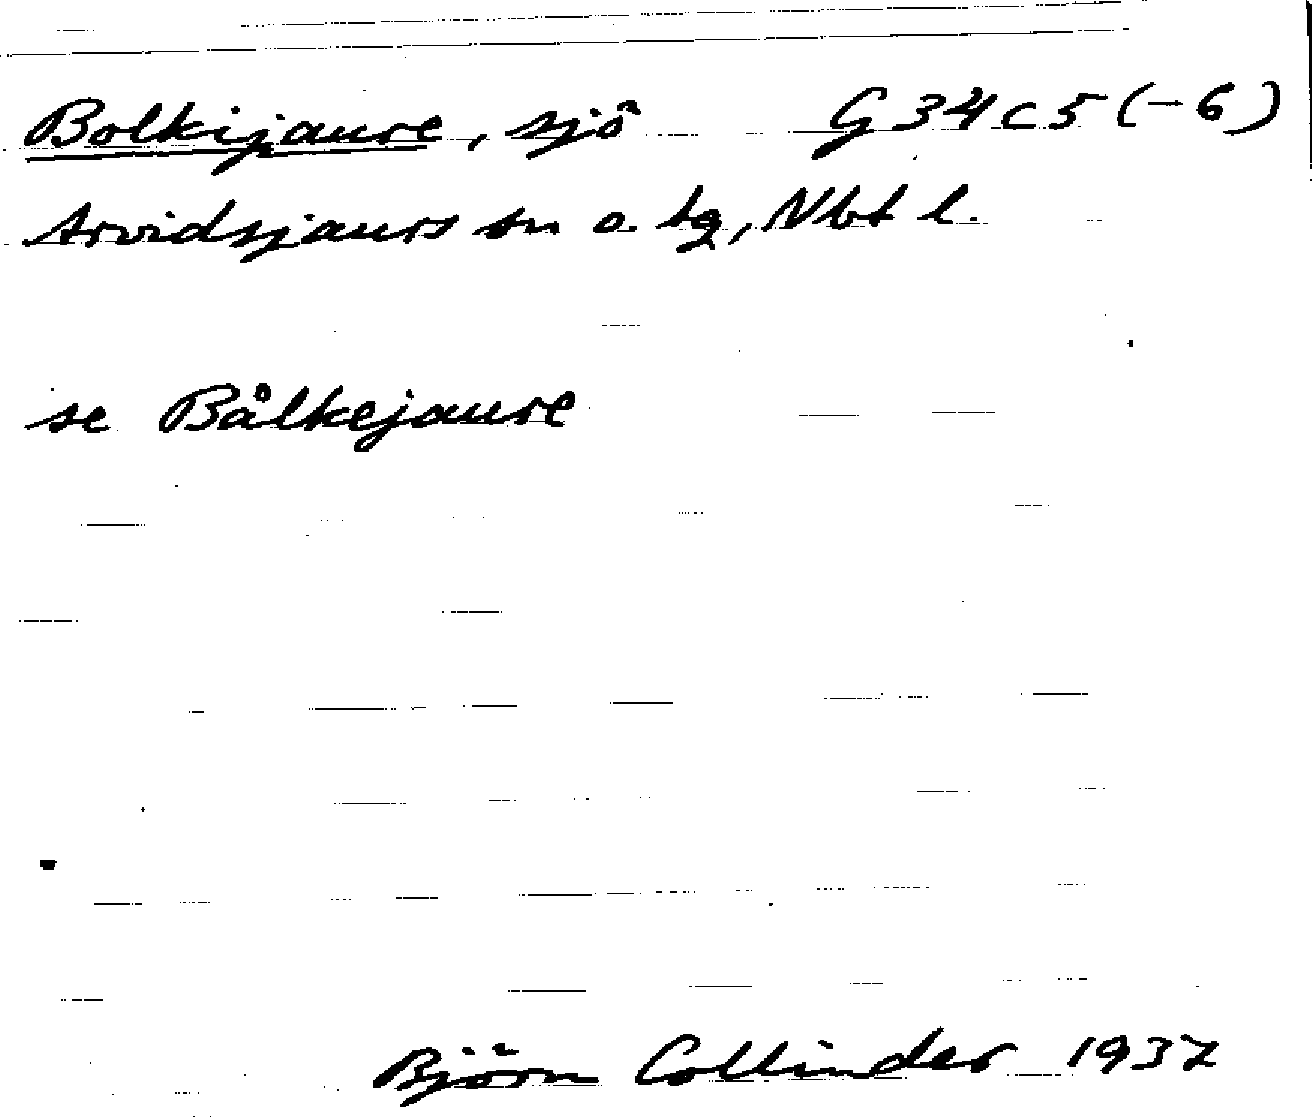 Bolkijaure, sjö G34c5(-6)
Arvidsjaurs sn o. tg, Nbt l.
se Bålkejaure
Björn Collinder 1937